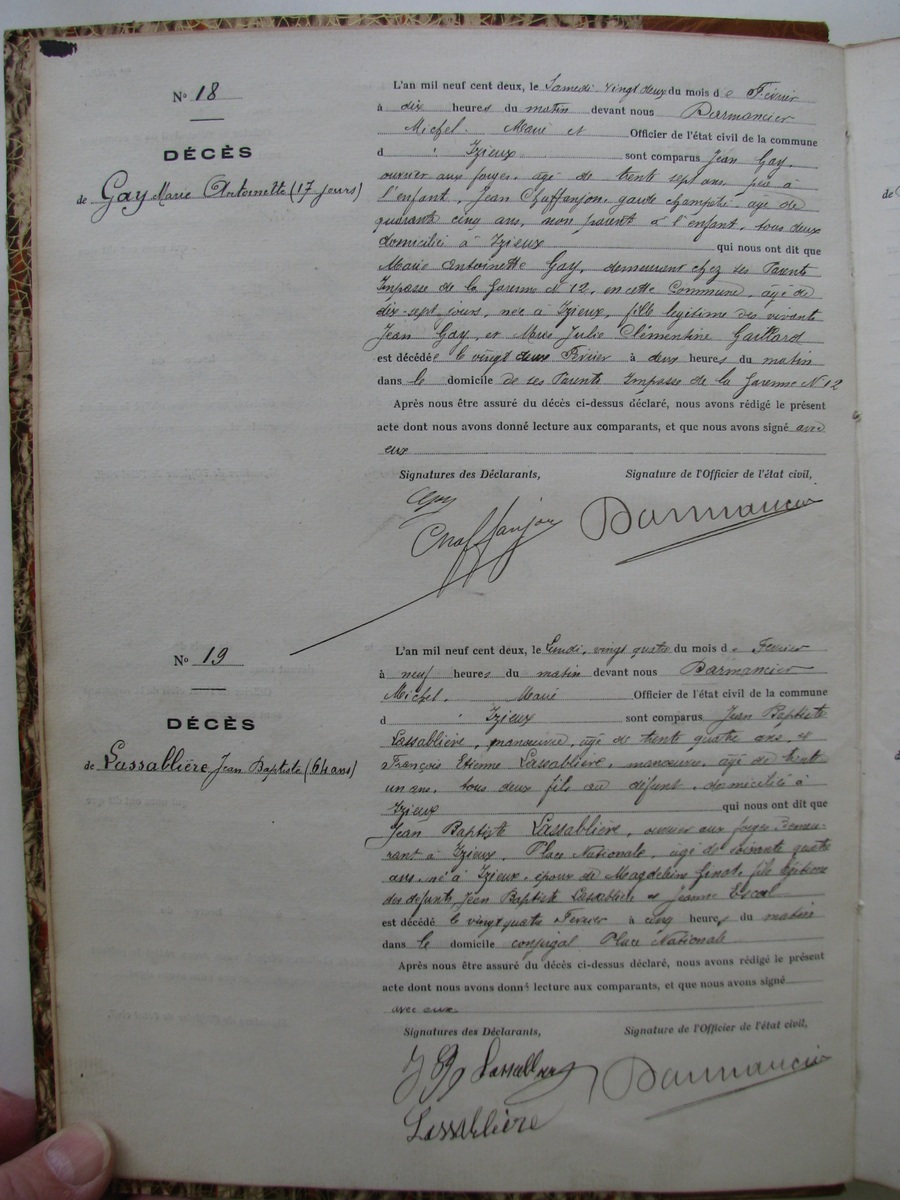 N° 18
DÉCÈS
de Gay Marie Antoinette (17 jours)
L'an mil neuf cent deux, le Samedi vingt deux du mois de Février
à dix heures du matin devant nous Darmancier
Michel. Maire et Officier de l'état civil de la commune
d' Izieux sont comparus Jean Gay,
ouvrier aux forges, âgé de trente sept ans, père de
l'enfant, Jean Chaffanjon, garde champêtre, âgé de
quarante cinq ans, non parent à l'enfant, tous deux
domiciliés à Izieux qui nous ont dit que
Marie Antoinette Gay, demeurant chez ses Parents
Impasse de la Garenne N° 12, en cette Commune, âgée de
dix-sept jours, née à Izieux, fille légitime des vivants
Jean Gay, et Marie Julie Clémentine Gaillard
est décédée le vingt deux Février à deux heures du matin
dans le domicile de ses Parents Impasse de la Garenne N° 12
Après nous être assuré du décès ci-dessus déclaré, nous avons rédigé le présent
acte dont nous avons donné lecture aux comparants, et que nous avons signé avec
eux
Signatures des Déclarants, Signature de l'Officier de l'état civil,
Gay
Chaffanjon Darmancier
N° 19
DÉCÈS
de Lassablière Jean Baptiste (64 ans)
L'an mil neuf cent deux, le Lundi, vingt quatre du mois de Février
à neuf heures du matin devant nous Darmancier
Michel. Maire Officier de l'état civil de la commune
d' Izieux sont comparus Jean Baptiste
Lassablière, manoeuvre, âgé de trente quatre ans, et
François Etienne Lassablière, manoeuvre, âgé de trente
un ans, tous deux fils au défunt, domiciliés à
Izieux qui nous ont dit que
Jean Baptiste Lassablière, ouvrier aux forges demeu-
rant à Izieux, Place Nationale, âgé de soixante quatre
ans, né à Izieux, époux de Magdeleine Ginot, fils légitime
des défunts Jean Baptiste Lassablière et Jeanne Escal
est décédé le vingt quatre Février à cinq heures du matin
dans le domicile conjugal Place Nationale
Après nous être assuré du décès ci-dessus déclaré, nous avons rédigé le présent
acte dont nous avons donné lecture aux comparants, et que nous avons signé
avec eux.
Signatures des Déclarants, Signature de l'Officier de l'état civil,
J B Lassablière Darmancier
Lassablière